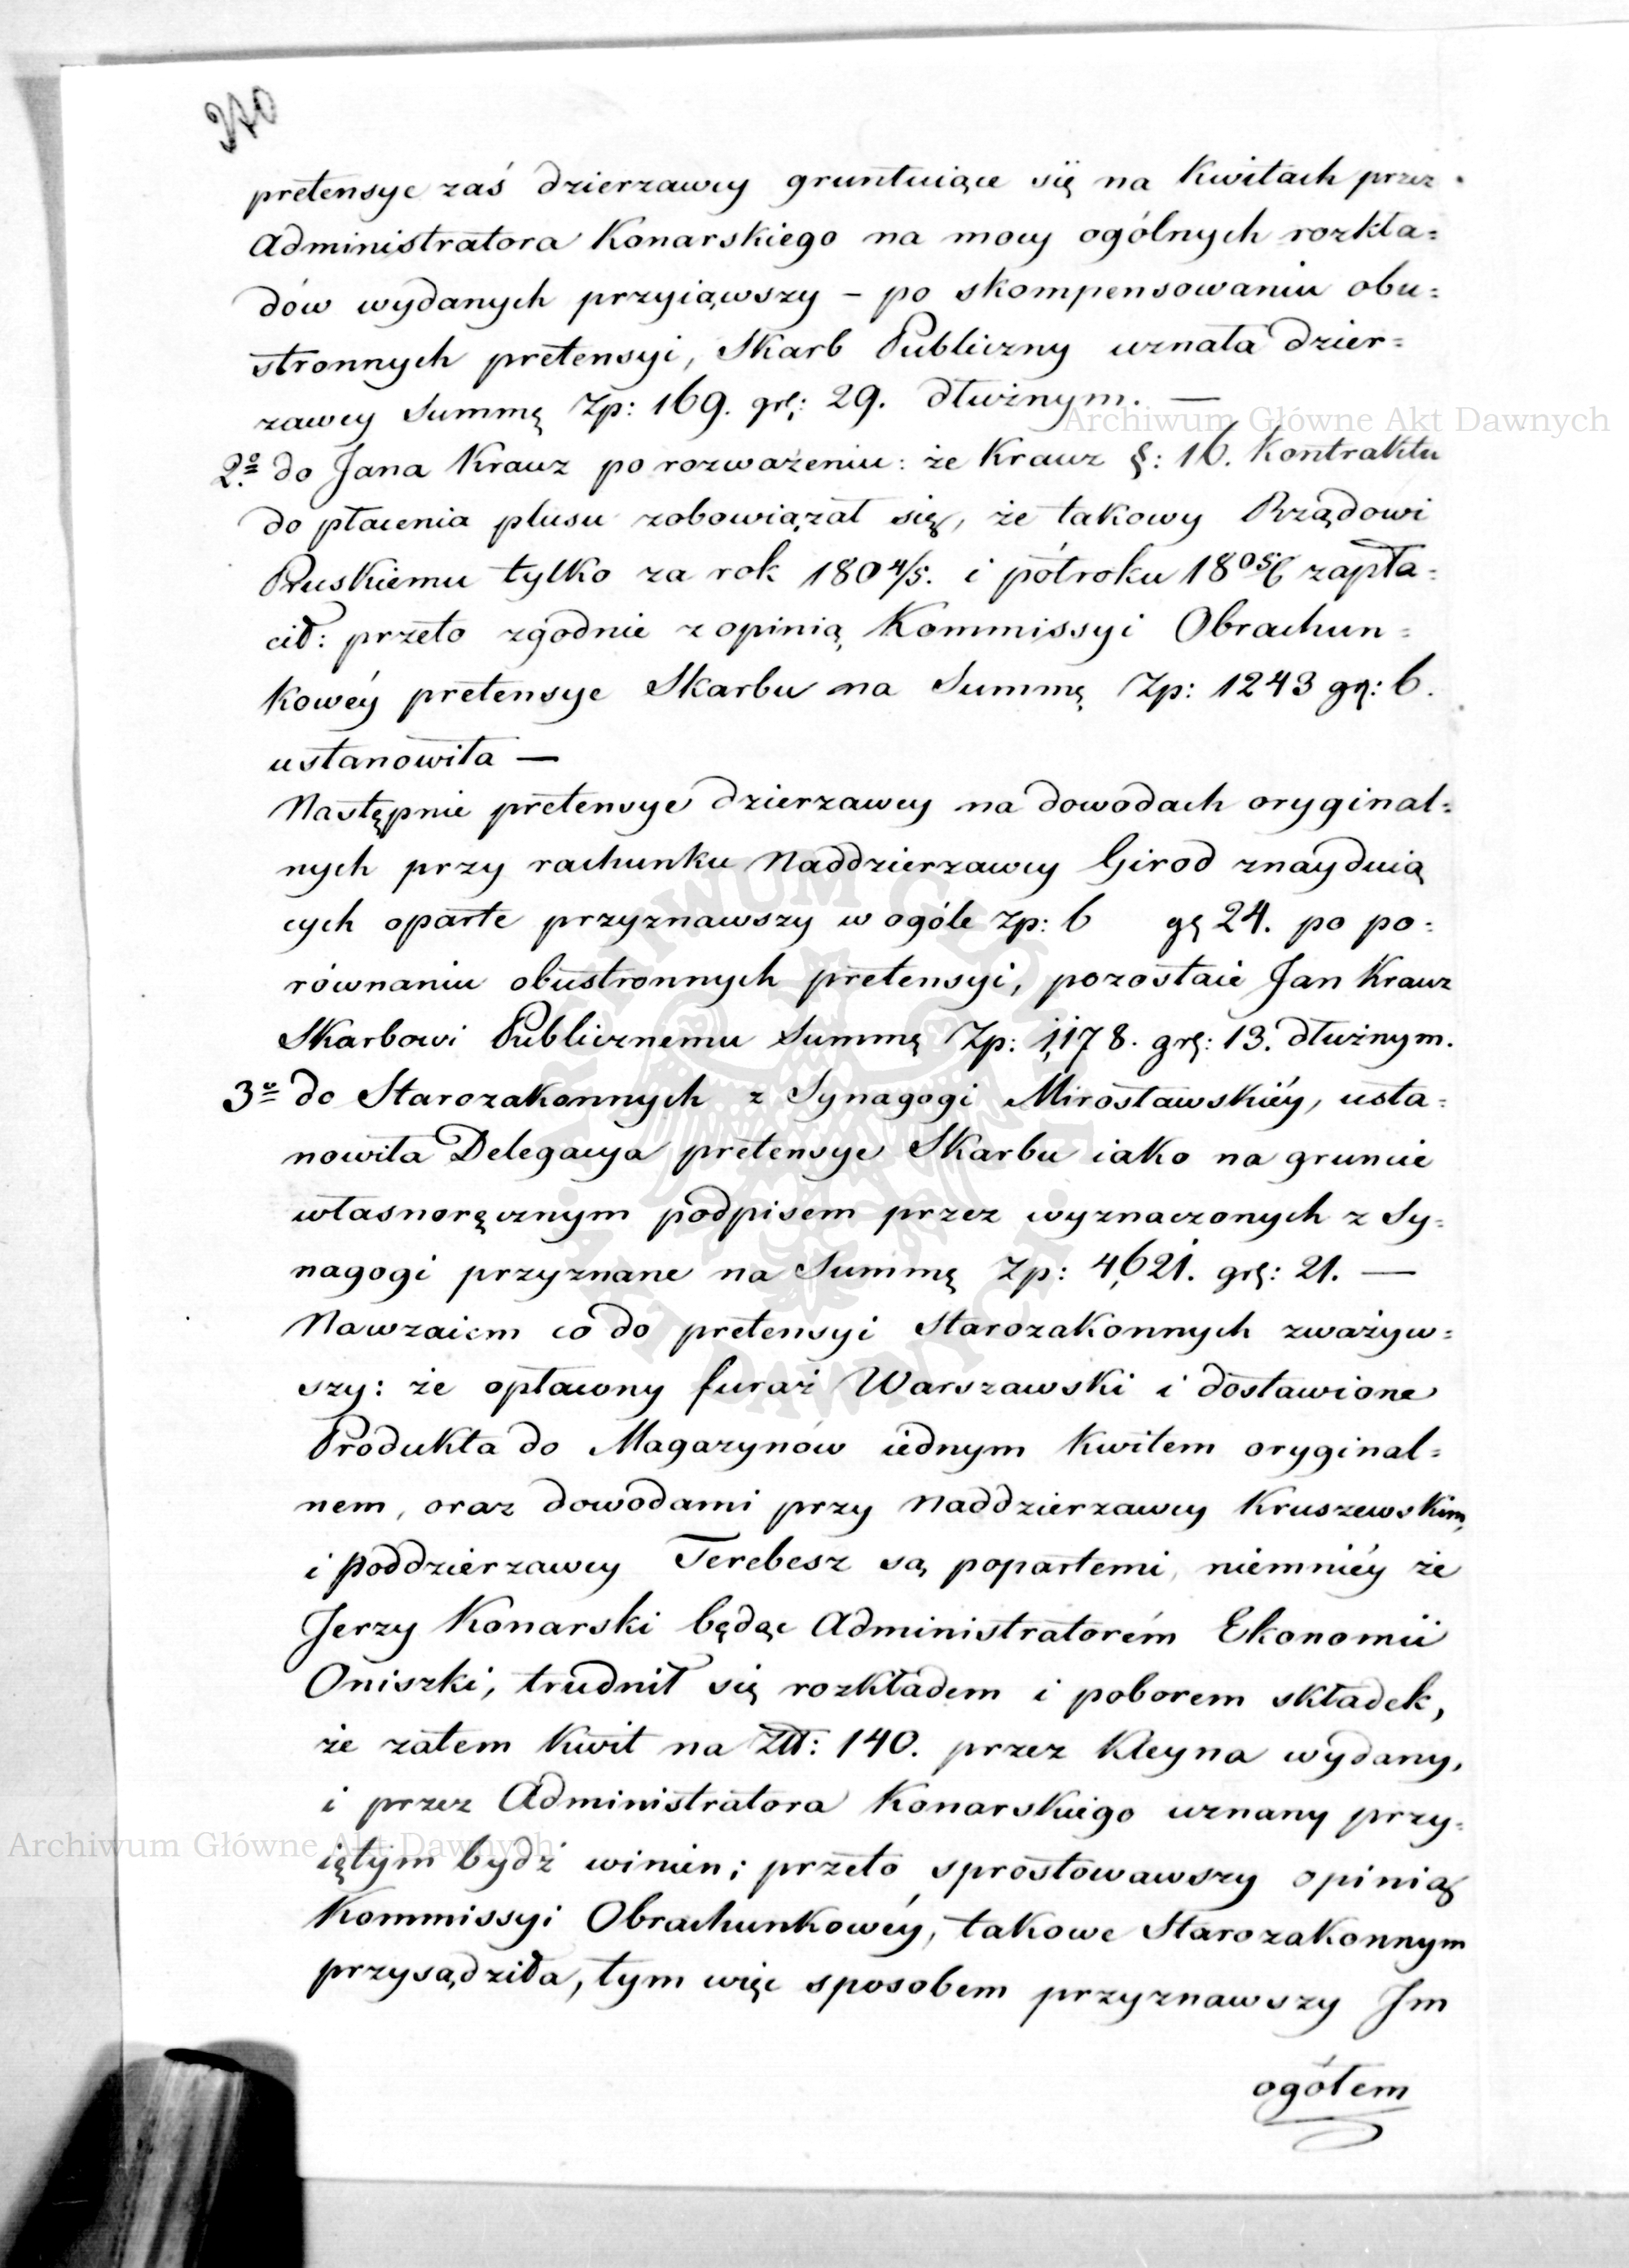 270
pretensye zaś dzierzawcy gruntuiące się na Kwitach przez
Administratora Konarskiego na mocy ogólnych rozkła=
dów wydanych przyiąwszy – po skompensowaniu obu=
stronnych pretensyi, Skarb Publiczny uznała dzier=
zawcy Summę Zp: 169. gr: 29. dłużnym. —
Archiwum Główne Akt Dawnych
2o do Jana Krauz po rozważeniu: że Krauz §: 16. Kontraktu
do płacenia plusu zobowiązał się, że takowy Rządowi
Pruskiemu tylko za rok 1804/5. i półroku 1805/6 zapła=
cił: przeto zgodnie z opinią Kommissyi Obrachun=
kowéy pretensye Skarbu na Summę Zp: 1243 gr: 6.
ustanowiła —
Następnie pretensye dzierzawcy na dowodach oryginal=
nych przy rachunku Naddzierzawcy Girod znayduią
cych oparte przyznawszy w ogóle Zp: 6 gr 24. po po=
równaniu obustronnych pretensyi, pozostaie Jan Krauz
Skarbowi Publicznemu Summę Zp: 1,178. gr: 13. dłużnym.
3o do Starozakonnych z Synagogi Mirosławskiéy, usta=
nowiła Delegacya pretensye Skarbu iako na gruncie
własnoręcznym podpisem przez wyznaczonych z Sy=
nagogi przyznane na Summę Zp: 4,621. gr: 21. —
Nawzaiem co do pretensyi Starozakonnych zważyw=
szy: że opłacony furaż Warszawski i dostawione
Produkta do Magazynów iednym Kwitem oryginal=
nem, oraz dowodami przy Naddzierzawcy Kruszewskim,
i Poddzierzawcy Terebesz są popartemi, niemniéy że
Jerzy Konarski będąc Administratorém Ekonomii
Oniszki, trudnił się rozkładem i poborem składek,
że zatem Kwit na Złł: 140. przez Kleyna wydany,
i przez Administratora Konarskiego uznany przy=
iętym bydź winien; przeto sprostowawszy opinią
Kommissyi Obrachunkowéy, takowe Starozakonnym
przysądziła, tym więc sposobem przyznawszy Im
ogółem
Archiwum Główne Akt Dawnych
ARCHIWUM GŁÓWNE AKT DAWNYCH